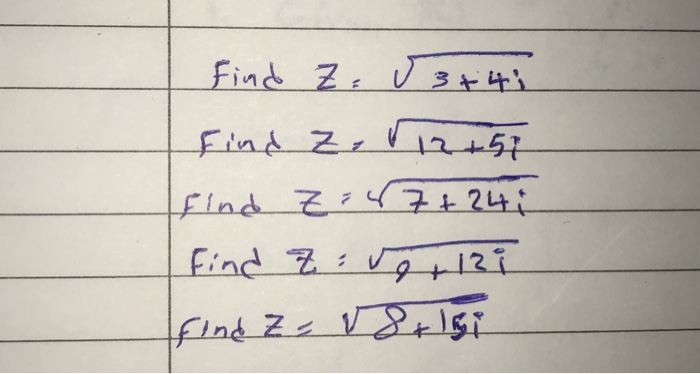 Find Z = √3+4i
Find Z = √12+5i
Find Z = √7+24i
Find Z = √9+12i
Find Z = √8+15i